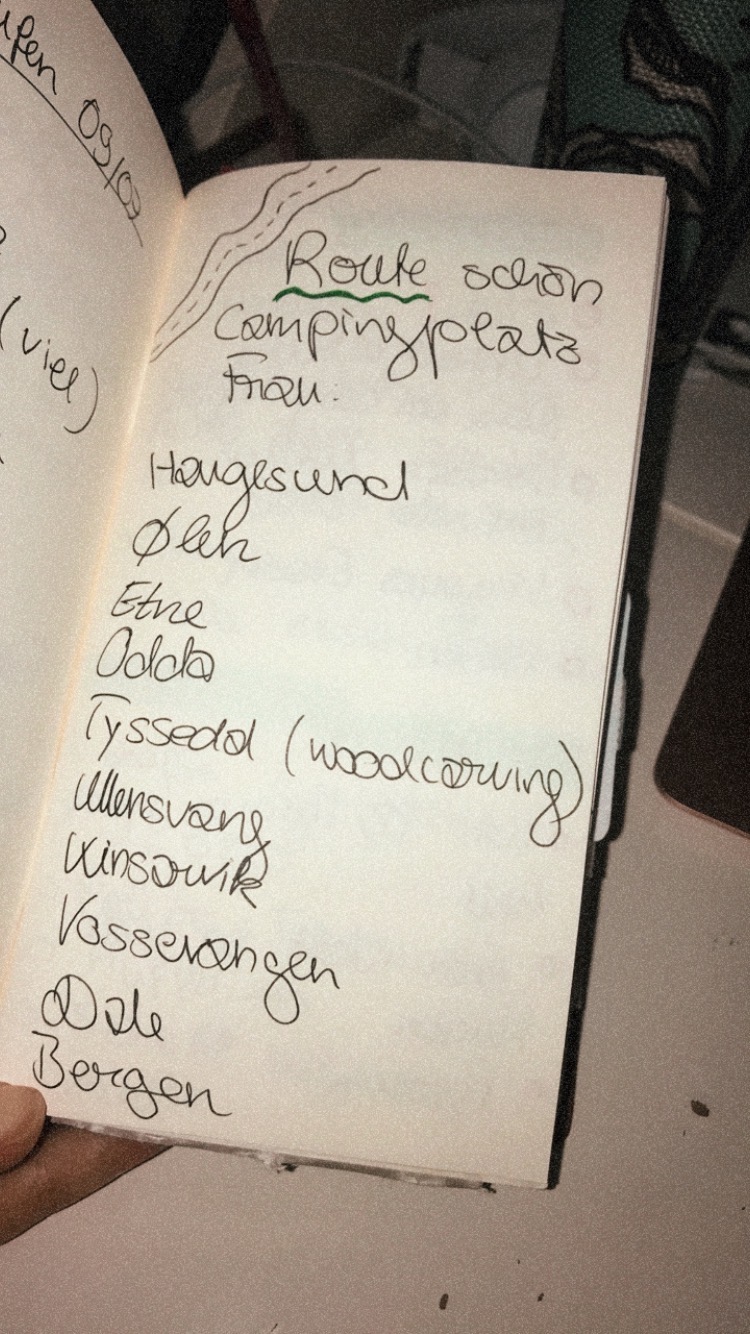 upfen 09/02
(viel)
Route schön
Campingplatz
Frau:
Haugesund
Ølen
Etne
Odda
Tyssedal (woodcarving)
Ullensvang
Kinsarvik
Vossevangen
Dale
Bergen